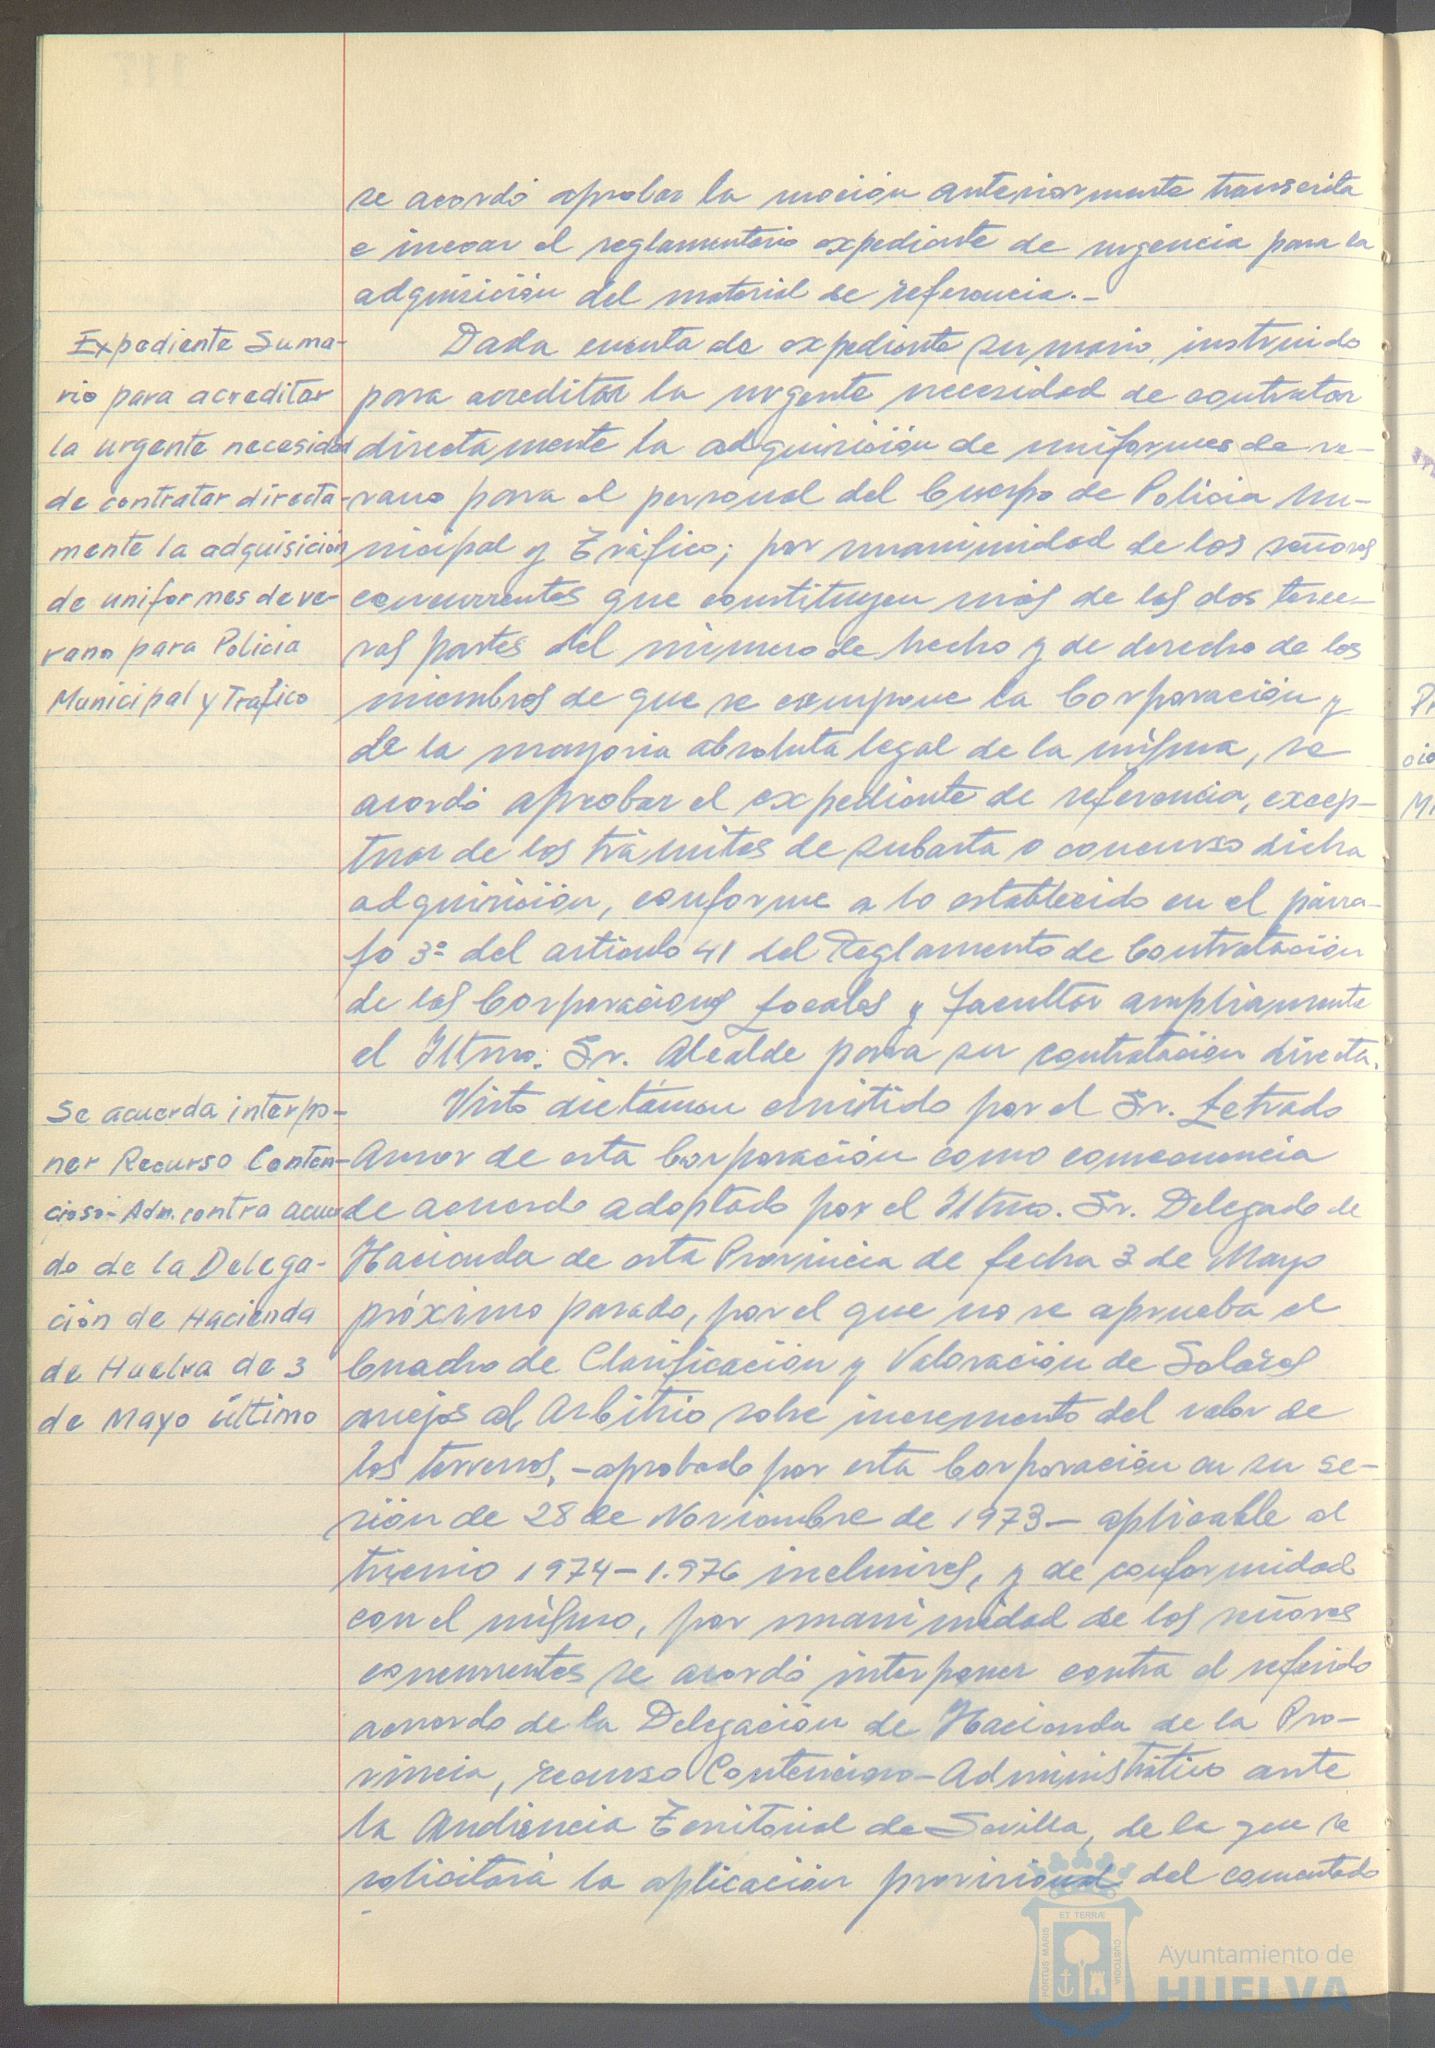 se acordó aprobar la moción anteriormente transcrita
e incoar el reglamentario expediente de urgencia para la
adquisición del material de referencia.-
Expediente Suma-
rio para acreditar
la urgente necesidad
de contratar directa-
mente la adquisición
de uniformes de ve-
rano para Policia
Municipal y Trafico
Dada cuenta de expediente sumario, instruido
para acreditar la urgente necesidad de contratar
directamente la adquisición de uniformes de ve-
rano para el personal del Cuerpo de Policia Mu-
nicipal y Tráfico; por unanimidad de los señores
concurrentes que constituyen más de las dos terce-
ras partes del número de hecho y de derecho de los
miembros de que se compone la Corporación y
de la mayoria absoluta legal de la misma, se
acordó aprobar el expediente de referencia, excep-
tuar de los trámites de subasta o concurso dicha
adquisición, conforme a lo establecido en el párra-
fo 3º del articulo 41 del Reglamento de Contratación
de las Corporaciones Locales y facultar ampliamente
el Iltmo. Sr. Alcalde para su contratación directa.
Se acuerda interpo-
ner Recurso Conten-
cioso-Adm. contra acuer
do de la Delega-
ción de Hacienda
de Huelva de 3
de Mayo último
Visto dictámen emitido por el Sr. Letrado
Asesor de esta Corporación como consecuencia
de acuerdo adoptado por el Iltmo. Sr. Delegado de
Hacienda de esta Provincia de fecha 3 de Mayo
próximo pasado, por el que no se aprueba el
Cuadro de Clasificación y Valoración de Solares
anejos al Arbitrio sobre incremento del valor de
los terrenos, -aprobado por esta Corporación en su se-
sión de 28 de Noviembre de 1973- aplicable al
trienio 1974-1.976 inclusives, y de conformidad
con el mismo, por unanimidad de los señores
concurrentes se acordó interponer contra el referido
acuerdo de la Delegación de Hacienda de la Pro-
vincia, recurso Contencioso-Administrativo ante
la Audiencia Territorial de Sevilla, de la que se
solicitará la aplicación provisional del comentado
PORTUS MARIS
ET TERRÆ
CUSTODIA
Ayuntamiento de
HUELVA